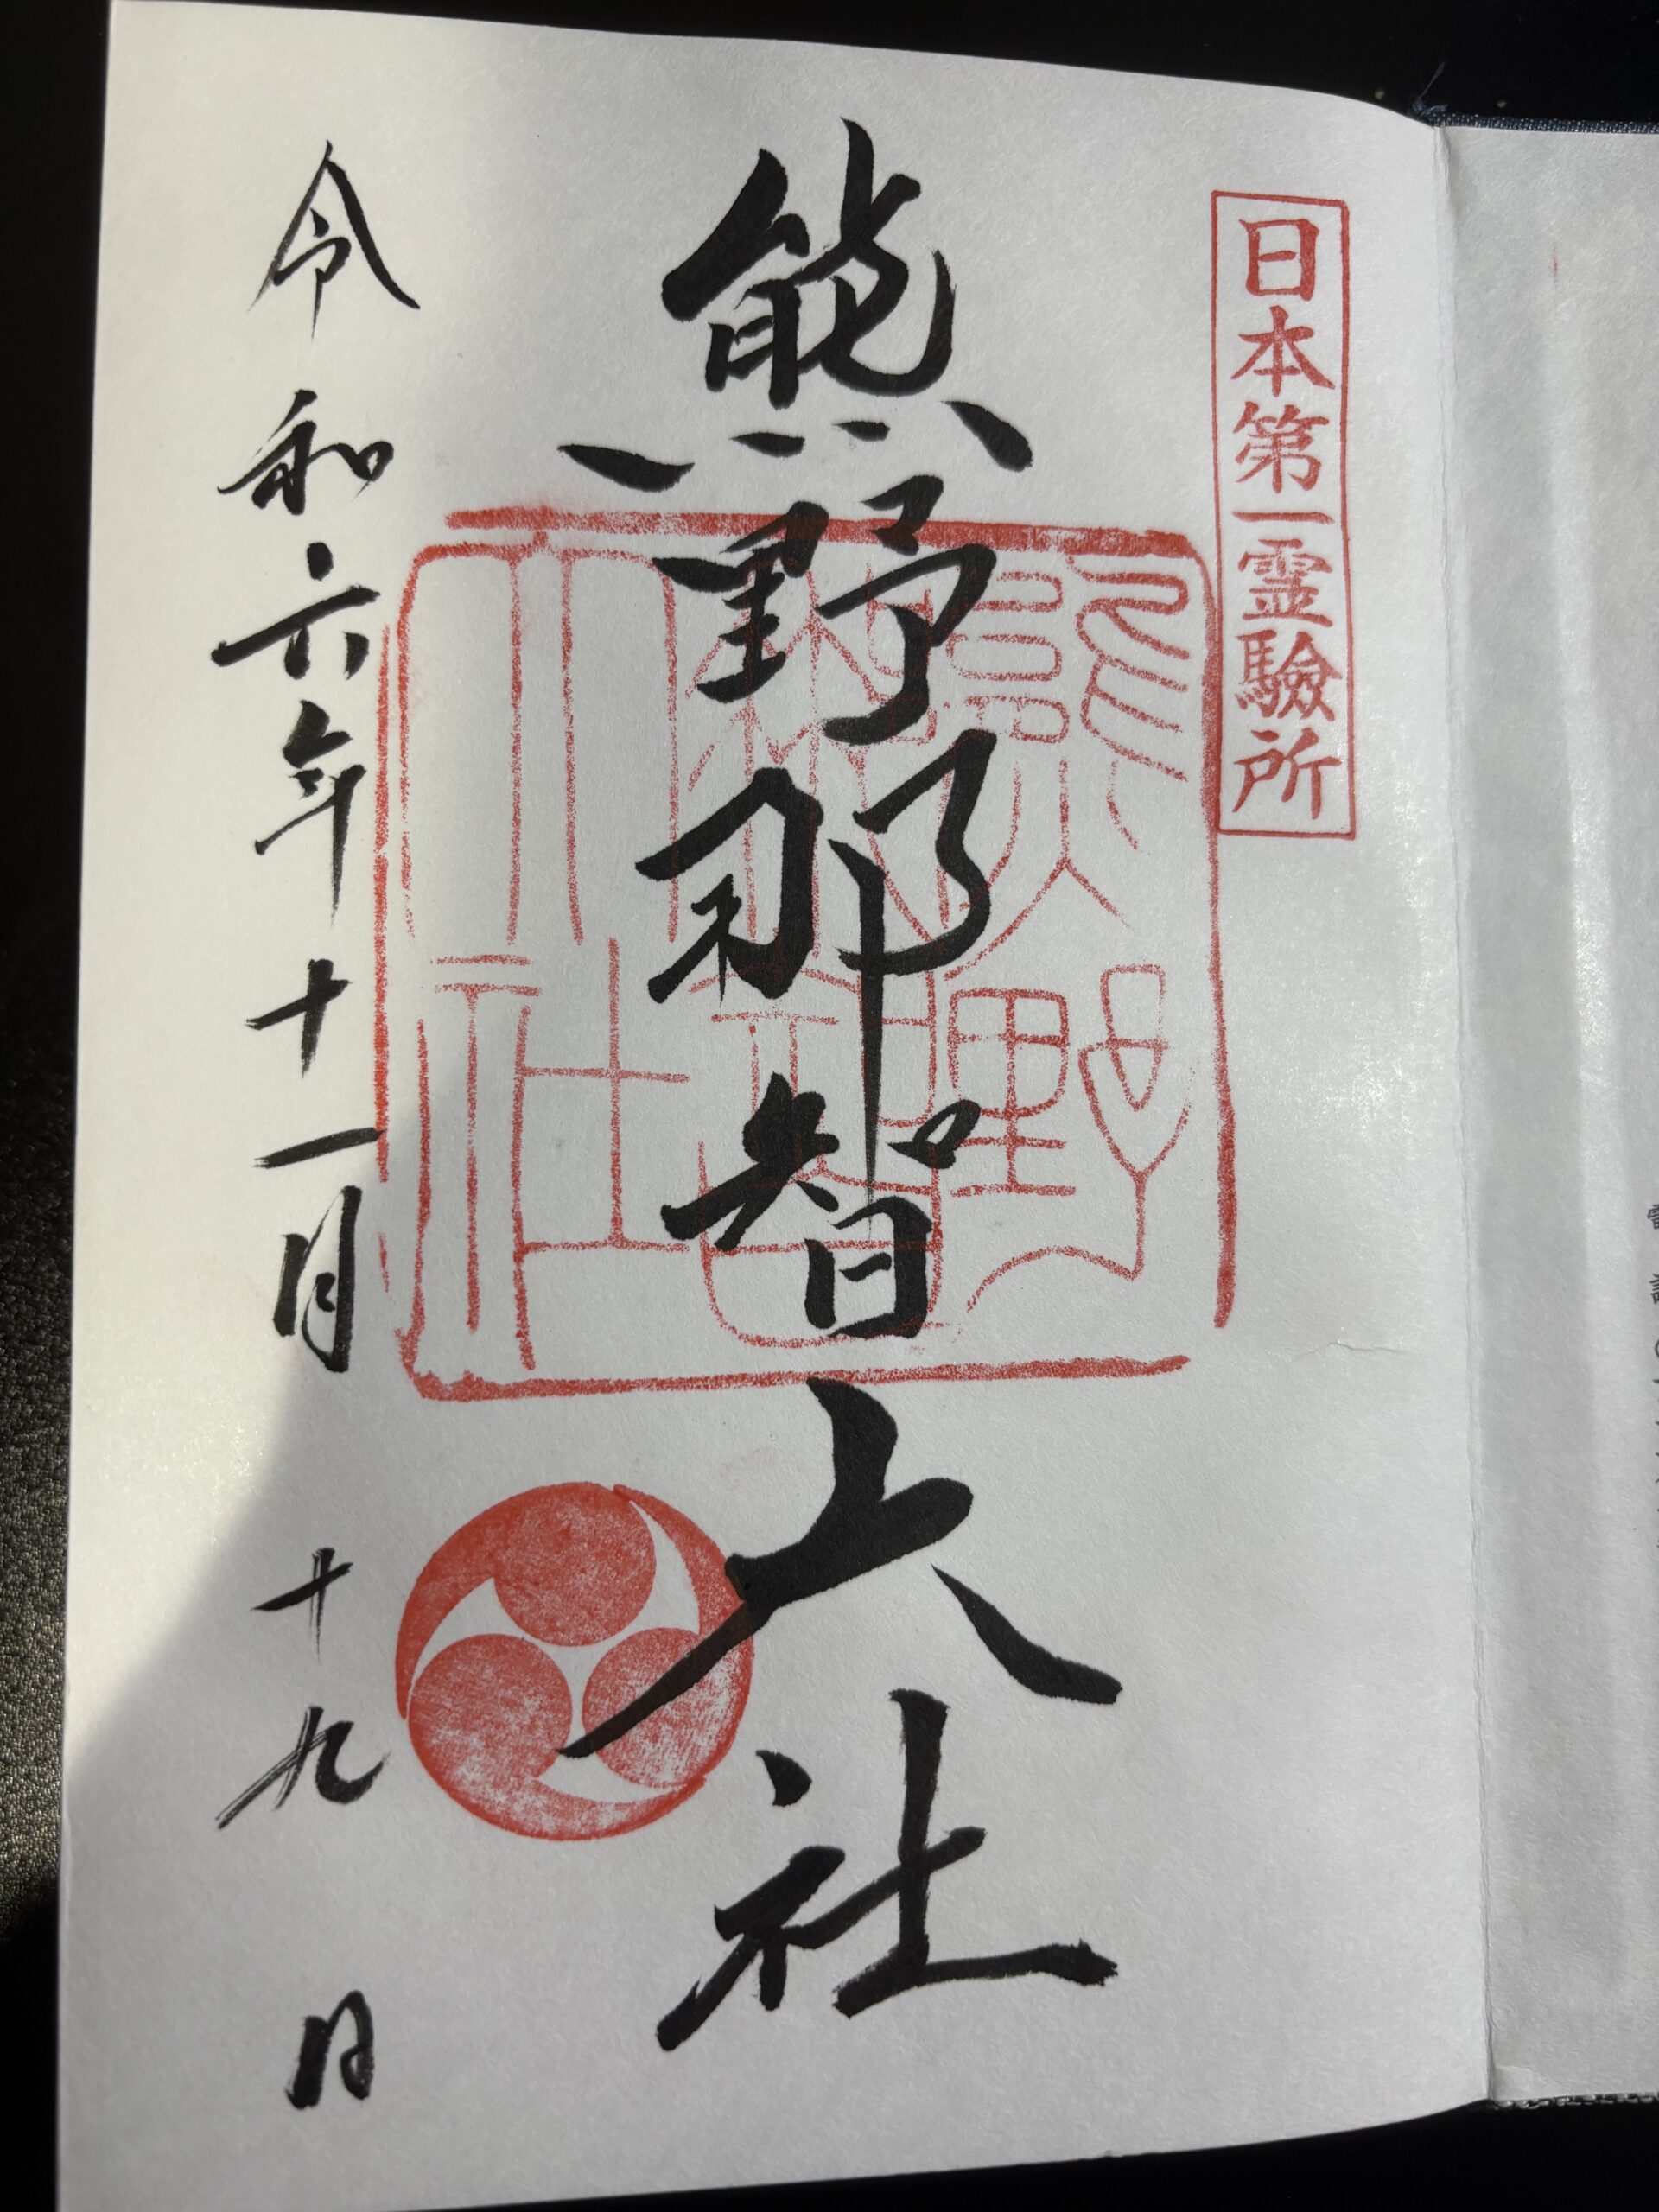 日本第一霊験所
熊野那智大社
熊野
那智
大社
令和六年十一月十九日